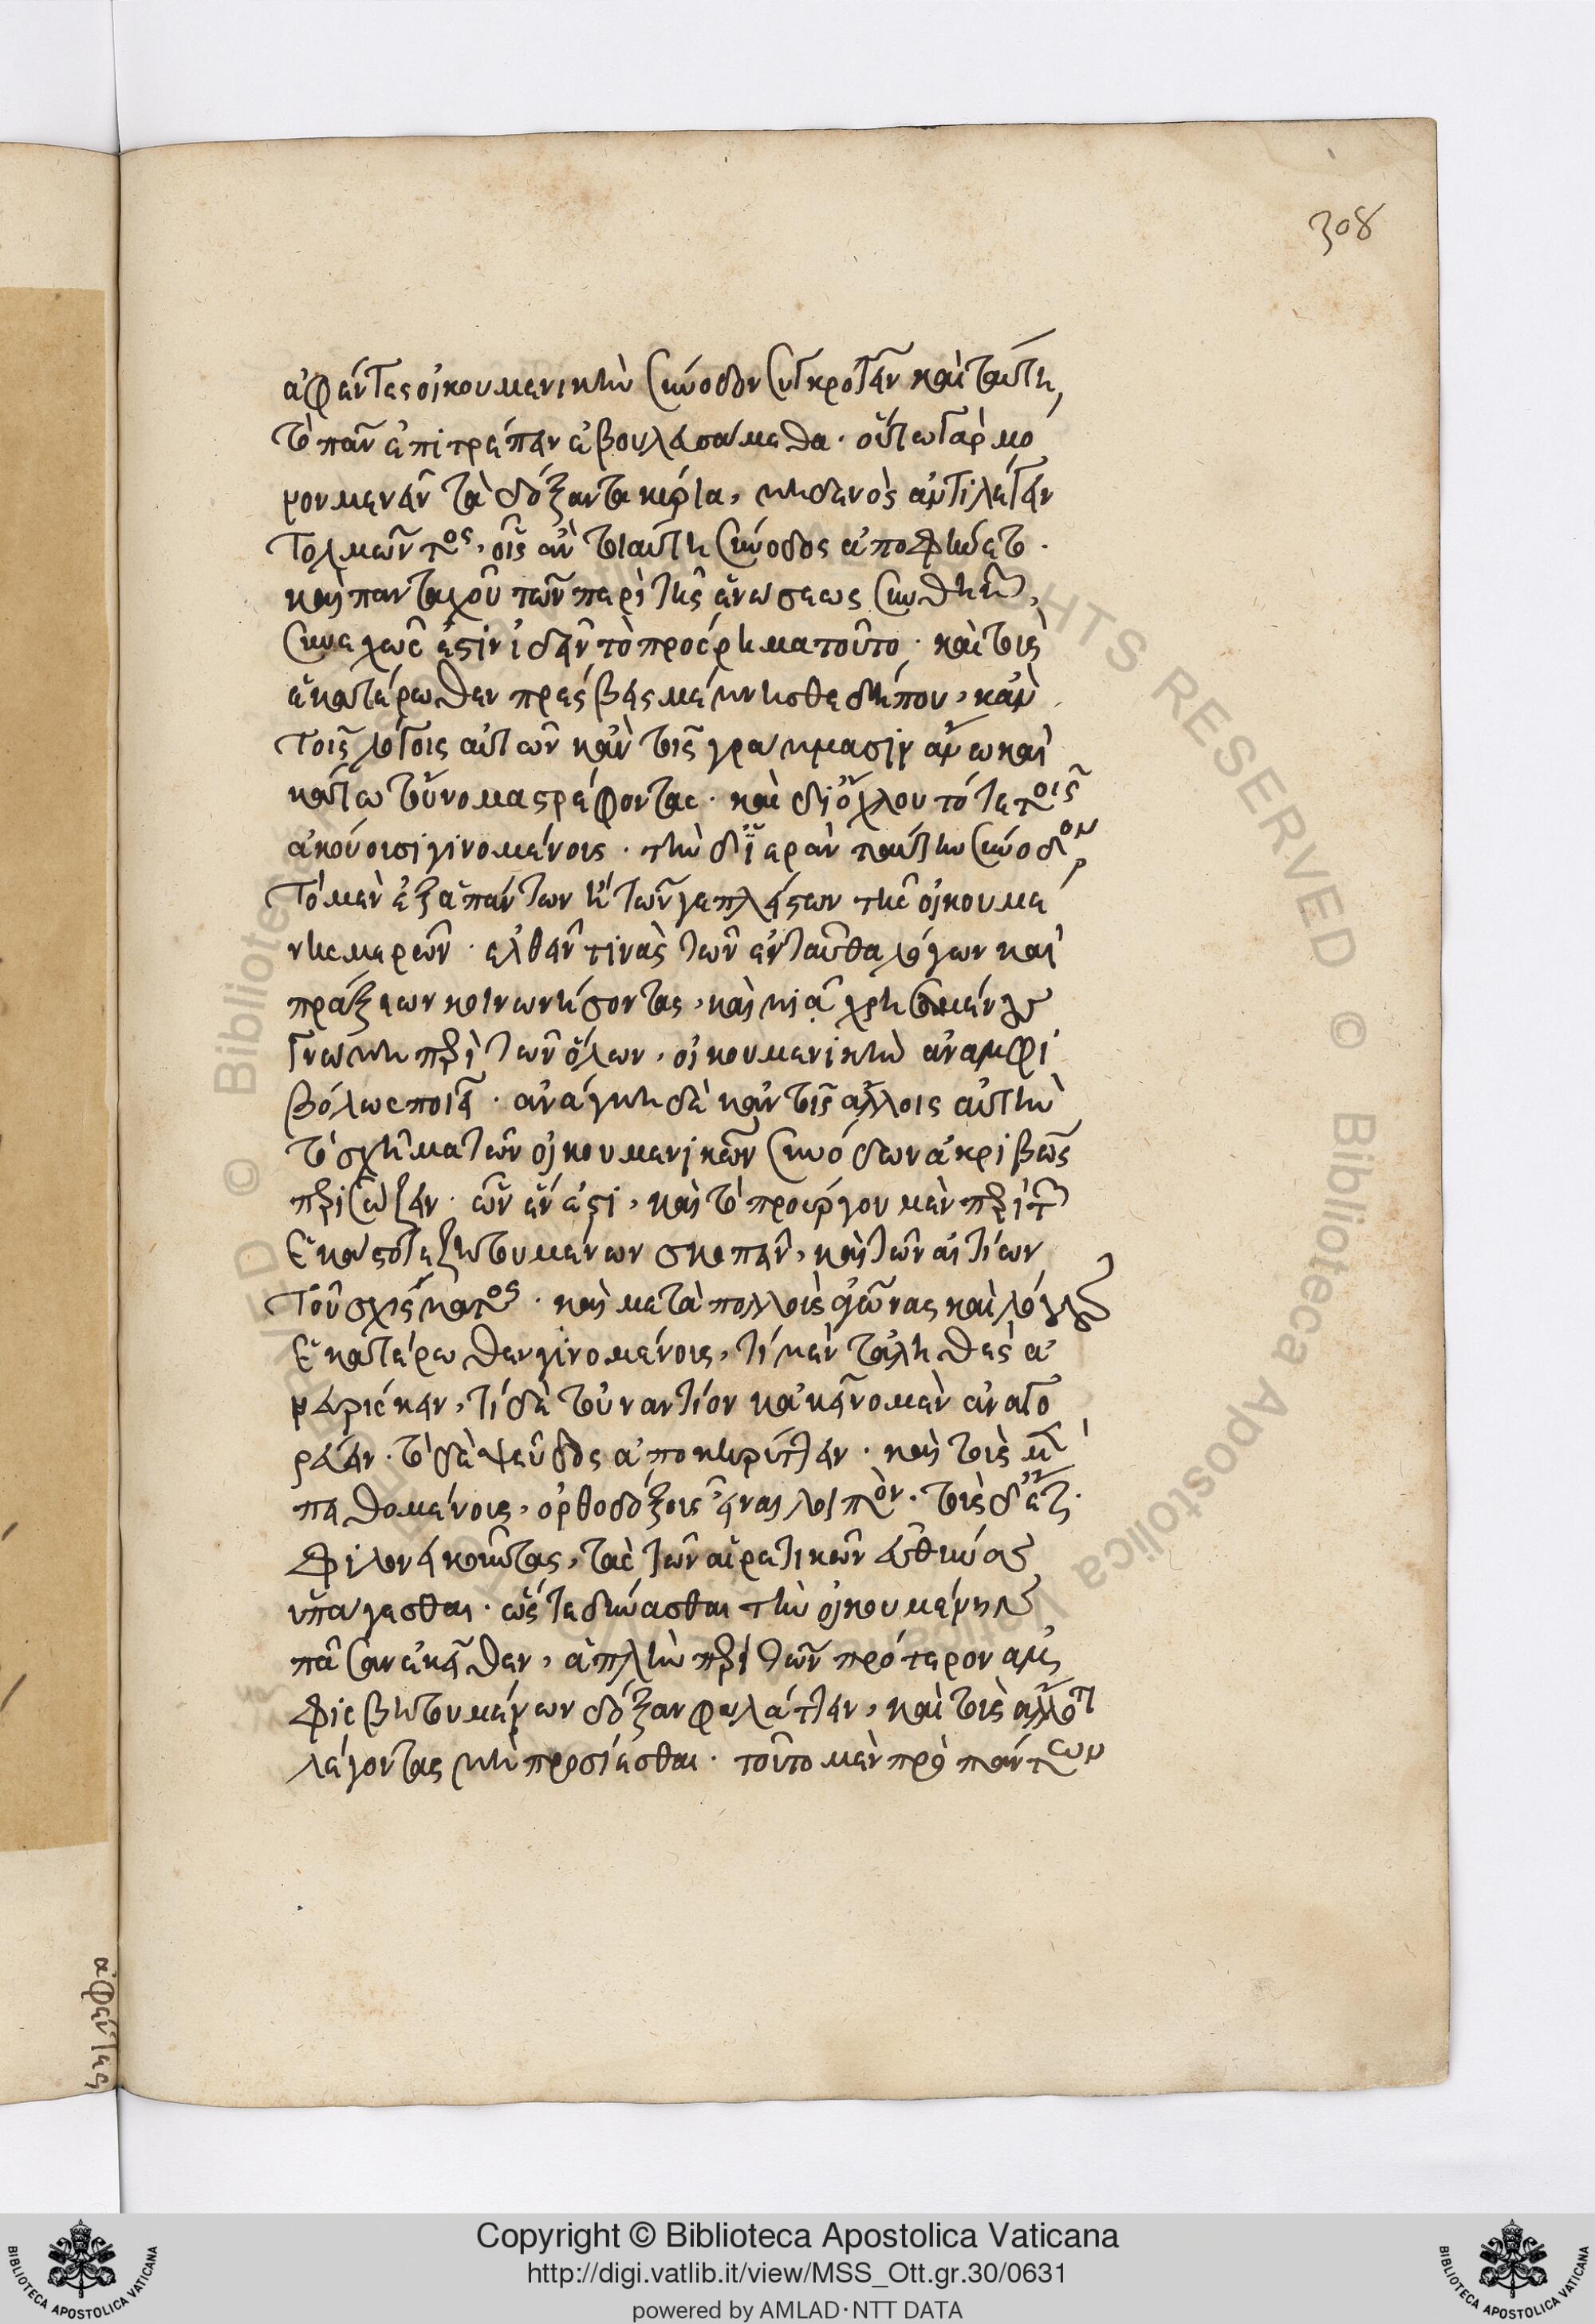 308
ἀφέντες οἰκουμενικὴν σύνοδον συγκροτεῖν καὶ ταύτη
τὸ πᾶν ἐπιτρέπειν ἐβουλευσάμεθα· οὕτω γὰρ μό
νον μένειν τὰ δόξαντα κύρια, μηδενὸς ἀντιλέγειν
τολμῶντος, οἷς ἂν τοιαύτη σύνοδος ἀποφήναιτο·
καὶ πανταχοῦ τῶν περὶ τῆς ἑνώσεως
συνεχῶς ἐστὶν ἰδεῖν τὸ πρόσρημα τοῦτο· καὶ τοὺς
ἑκατέρωθεν πρέσβεις μέμνησθε δήπου, κἀν
τοῖς λόγοις αὐτῶν κἀν τοῖς γράμμασιν ἄνω καὶ
κάτω τοὔνομα στρέφοντας· καὶ δι᾽ ὄχλου τότε τοῖς
ἀκούουσι γινομένους· τὴν δ᾽ ἱερὰν ταύτην σύνοδον
τὸ μὲν ἐξ ἁπάντων ἢ τῶν γε πλείστων τῆς οἰκουμέ
νης μερῶν· ἐλθεῖν τινὰς τῶν ἐνταῦθα λόγων καὶ
πράξεων κοινωνήσοντας, καὶ μιᾷ χρησομένους
γνώμη περὶ τῶν ὅλων, οἰκουμενικὴν ἀναμφι
βόλως ποιεῖ· ἀνάγκη δὲ κἀν τοῖς ἄλλοις αὐτὴν
τὸ σχῆμα τῶν οἰκουμενικῶν συνόδων ἀκριβῶς
περισώζειν· ὧν ἕν ἐστι, καὶ τὸ προὔργου μὲν περὶ τῶν
ἑκάστοτε ζητουμένων σκοπεῖν, καὶ τῶν αἰτίων
τοῦ σχίσματος· καὶ μετὰ πολλοὺς ἀγῶνας καὶ λόγους
ἑκατέρωθεν γινομένους, τί μὲν τἀληθὲς ἀ
νευρίσκειν, τί δὲ τοὐναντίον κἀκεῖνο μὲν ἀναγο
ρεύειν· τὸ δὲ ψεῦδος ἀποκηρύττειν· καὶ τοὺς μὲν
πειθομένους, ὀρθοδόξους εἶναι λοιπόν· τοὺς δ᾽ ἔτι
φιλονεικοῦντας, ταῖς τῶν αἱρετικῶν εὐθύναις
ὑπάγεσθαι· ὥστε δύνασθαι τὴν οἰκουμένην
πᾶσαν ἐκεῖθεν, ἁπλὴν περὶ τῶν πρότερον ἀμ
φισβητουμένων δόξαν φυλάττειν, καὶ τοὺς ἄλλό τι
λέγοντας μὴ προσίεσθαι· τοῦτο μὲν πρὸ πάντων
ἀφέντες
Copyright © Biblioteca Apostolica Vaticana
http://digi.vatlib.it/view/MSS_Ott.gr.30/0631
powered by AMLAD·NTT DATA